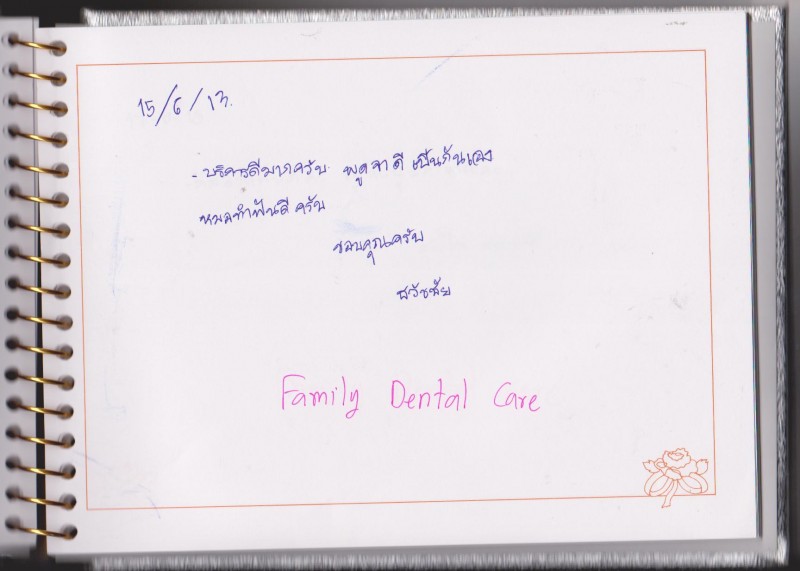 15/6/13.
- บริการดีมากครับ พูดจาดี เป็นกันเอง
หมอทำฟันดี ครับ
ขอบคุณครับ
ธวัชชัย
Family Dental Care